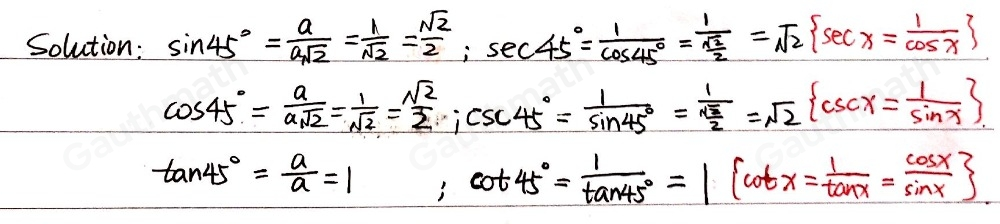 Solution: sin45° = a/(a√2) = 1/√2 = √2/2 ; sec45° = 1/cos45° = 1/(√2/2) = √2 {sec x = 1/cos x}
cos45° = a/(a√2) = 1/√2 = √2/2 ; csc45° = 1/sin45° = 1/(√2/2) = √2 {cscx = 1/sinx}
tan45° = a/a = 1 ; cot45° = 1/tan45° = 1 {cot x = 1/tanx = cosx/sinx}
Gauthmath
Gauthmath